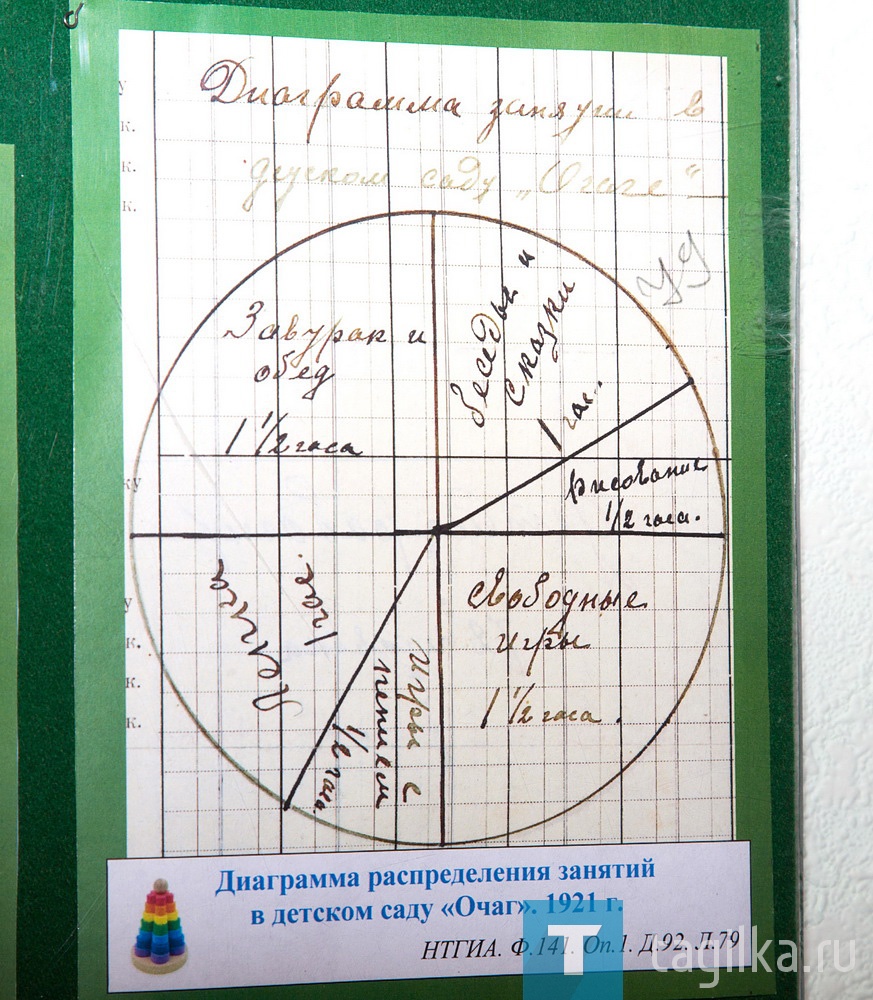 Диаграмма занятий в
детском саду „Очаге“
Завтрак и
обед
1 1/2 часа
Беседы и
Сказки
1 час.
Рисование
1/2 часа.
Свободные
игры
1 1/2 часа.
Игры с
пением
1/2 часа.
Лепка
1 час.
у
к.
к.
к.
ку
у
к.
к.
к.
Диаграмма распределения занятий
в детском саду «Очаг». 1921 г.
НТГИА. Ф.141. Оп.1. Д.92. Л.79
T tagilka.ru